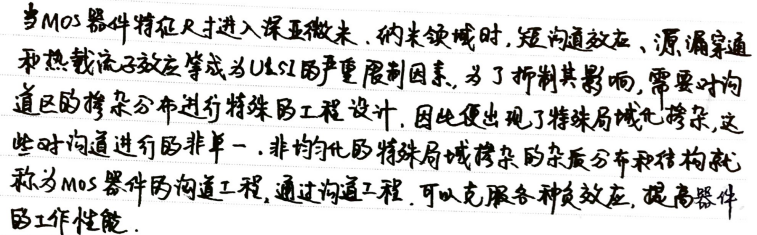 当MOS器件特征尺寸进入深亚微米、纳米领域时,短沟道效应、源漏穿通
和热载流子效应等成为ULSI的严重限制因素。为了抑制其影响,需要对沟
道区的掺杂分布进行特殊的工程设计.因此便出现了特殊局域化掺杂,这
些对沟道进行的非单一、非均匀化的特殊局域掺杂的杂质分布和结构就
称为MOS器件的沟道工程,通过沟道工程.可以克服各种负效应,提高器件
的工作性能.